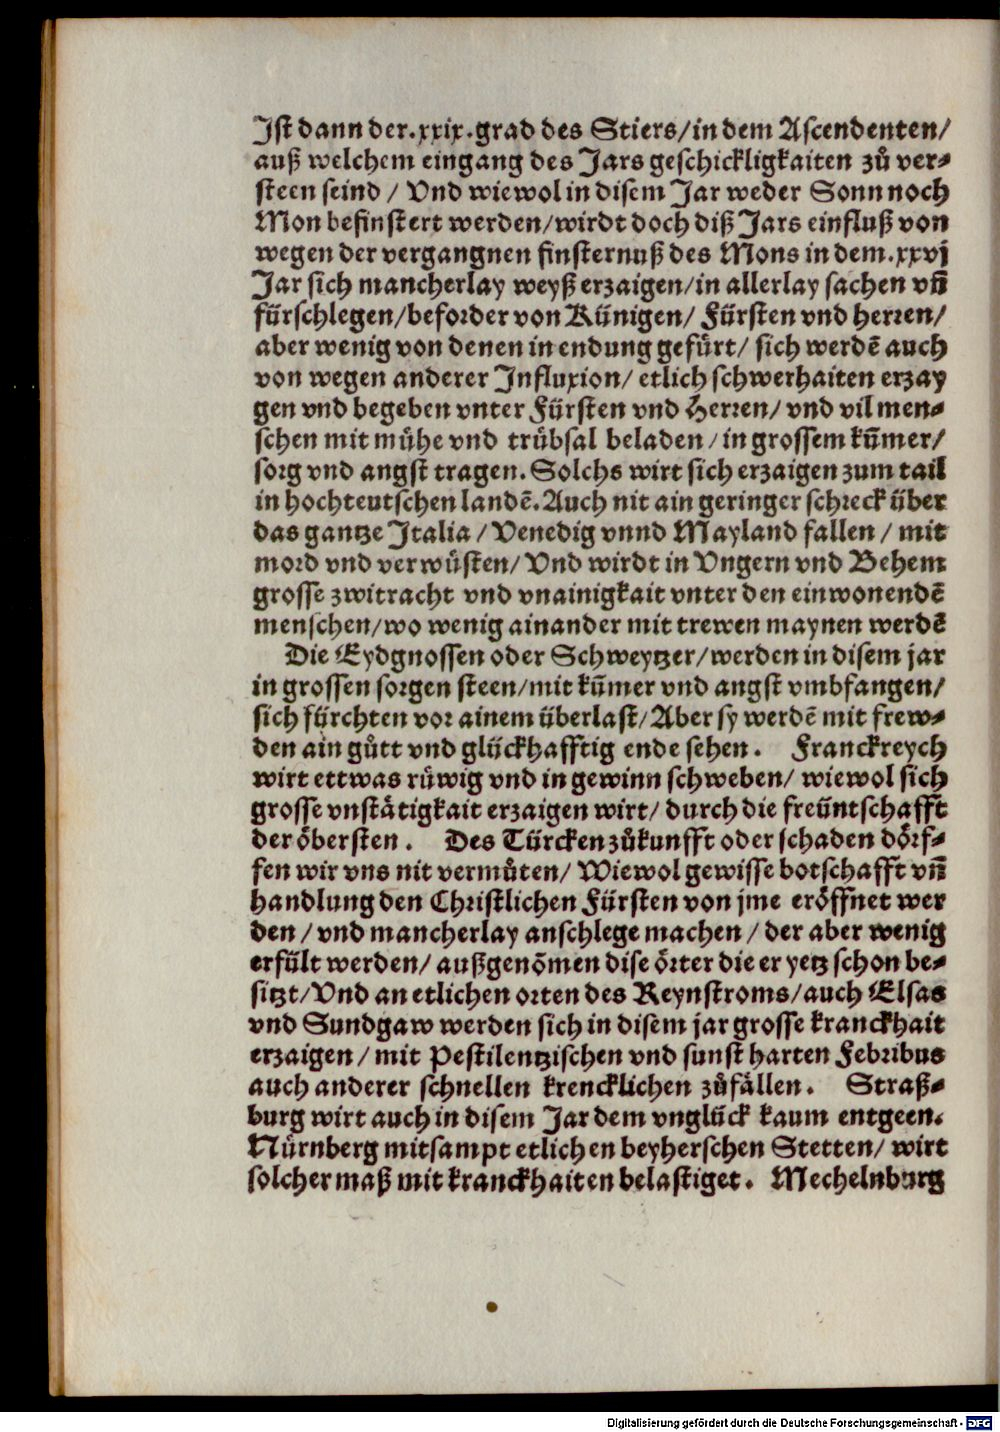 Ist dann der.xxix.grad des Stiers/in dem Ascendenten/
auß welchem eingang des Jars geschickligkaiten zů ver⸗
steen seind / Vnd wiewol in disem Jar weder Sonn noch
Mon befinstert werden/wirdt doch diß Jars einfluß von
wegen der vergangnen finsternuß des Mons in dem.xxvj
Jar sich mancherlay weyß erzaigen/in allerlay sachen vñ
fürschlegen/beforder von Künigen/ Fürsten vnd herren/
aber wenig von denen in endung gefürt/ sich werdē auch
von wegen anderer Influxion/ etlich schwerhaiten erzay
gen vnd begeben vnter Fürsten vnd Herren/ vnd vil men⸗
schen mit mühe vnd trübsal beladen/in grossem kūmer/
sorg vnd angst tragen. Solchs wirt sich erzaigen zum tail
in hochteutschen landē. Auch nit ain geringer schreck über
das gantze Italia / Venedig vnnd Mayland fallen / mit
mord vnd verwüsten/ Vnd wirdt in Vngern vnd Behem
grosse zwitracht vnd vnainigkait vnter den einwonendē
menschen/wo wenig ainander mit trewen maynen werdē
Die Eydgnossen oder Schweytzer/werden in disem jar
in grossen sorgen steen/mit kūmer vnd angst vmbfangen/
sich fürchten vor ainem überlast/Aber sy werdē mit frew⸗
den ain gůtt vnd glückhafftig ende sehen. Franckreych
wirt ettwas rüwig vnd in gewinn schweben/ wiewol sich
grosse vnstätigkait erzaigen wirt/ durch die freüntschafft
der öbersten. Des Türcken zůkunfft oder schaden dörf⸗
fen wir vns nit vermůten/ Wiewol gewisse botschafft vñ
handlung den Christlichen Fürsten von jme eröffnet wer
den / vnd mancherlay anschlege machen / der aber wenig
erfült werden/ außgenōmen dise örter die er yetz schon be⸗
sitzt/Vnd an etlichen orten des Reynstroms/auch Elsas
vnd Sundgaw werden sich in disem jar grosse kranckhait
erzaigen / mit Pestilentzischen vnd sunst harten Febribus
auch anderer schnellen krencklichen zůfällen. Straß⸗
burg wirt auch in disem Jar dem vnglück kaum entgeen.
Nürnberg mitsampt etlichen beyherschen Stetten/ wirt
solcher maß mit kranckhaiten belastiget. Mechelnburg
Digitalisierung gefördert durch die Deutsche Forschungsgemeinschaft - DFG